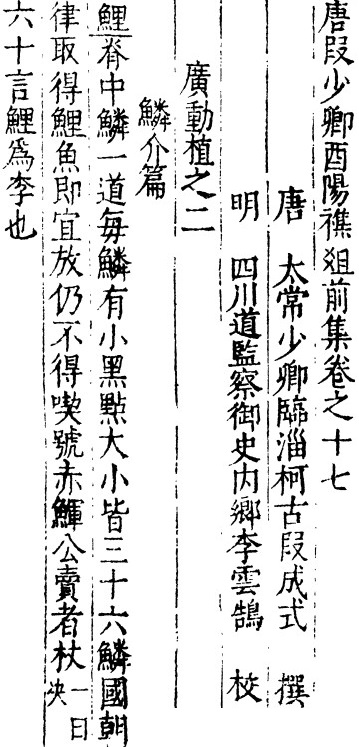 唐段少卿酉陽襍俎前集卷之十七
唐　太常少卿臨淄柯古段成式　撰
明　四川道監察御史内鄉李雲鵠　校
廣動植之二
鱗介篇
鯉脊中鱗一道每鱗有小黑點大小皆三十六鱗國朝
律取得鯉魚即宜放仍不得喫號赤鯶公賣者杖一曰決
六十言鯉爲李也